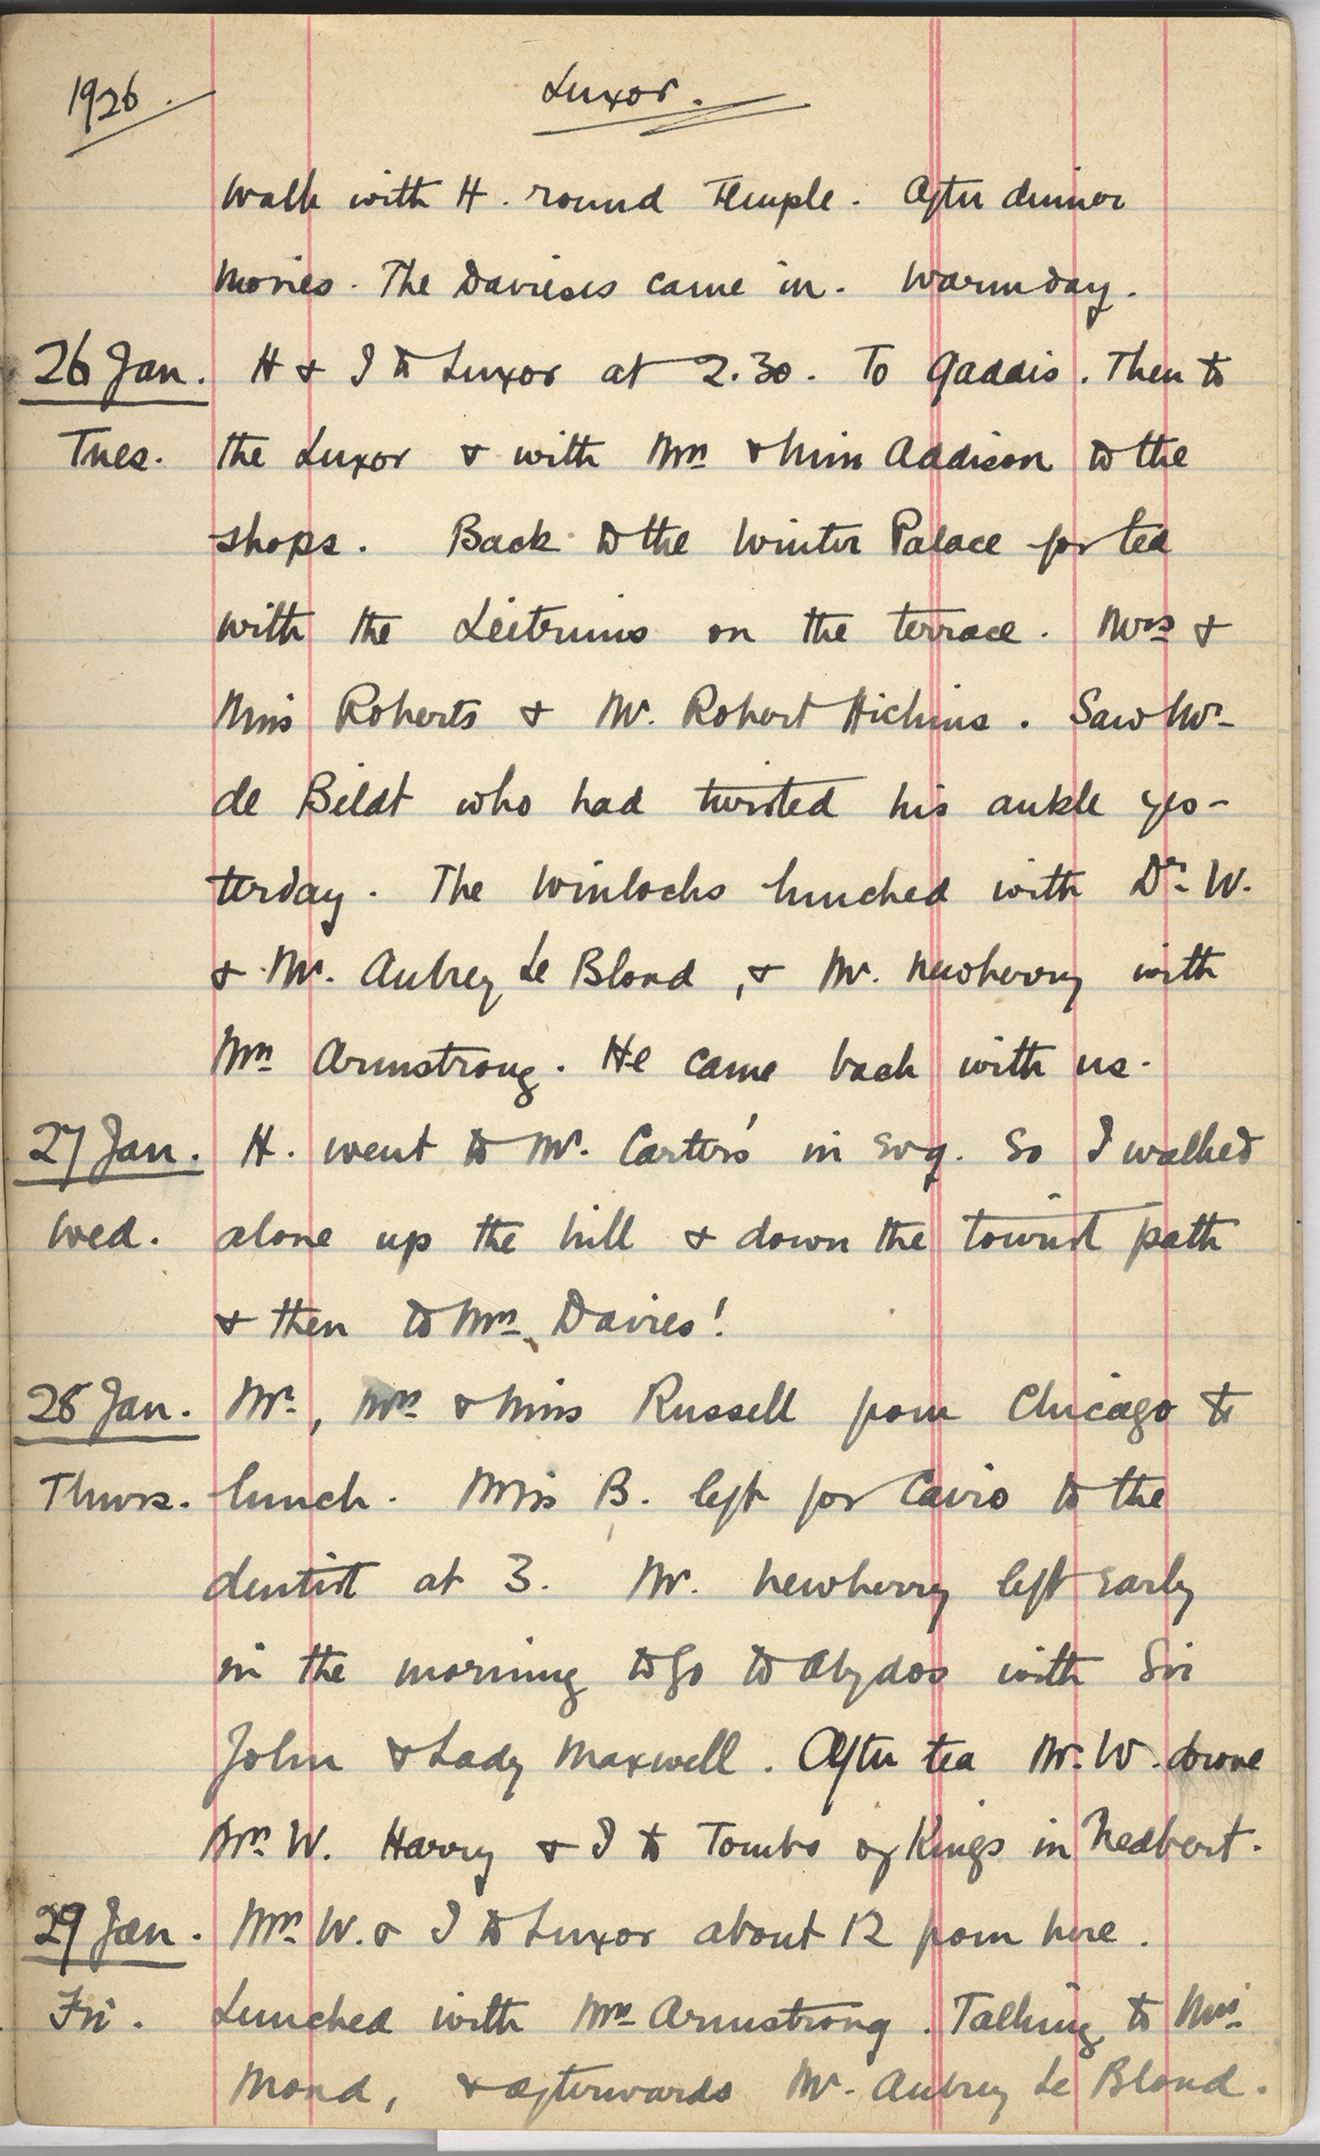 1926. Luxor.
walk with H. round Temple. After dinner
movies. The Davieses came in. Warm day.
26 Jan. H & I to Luxor at 2.30. To Gaddis. Then to
Tues. the Luxor & with Mrs & Miss Addison to the
shops. Back to the Winter Palace for tea
with the Leitrims on the terrace. Mrs &
Miss Roberts & Mr. Robert Hichins. Saw Mr
de Bildt who had twisted his ankle yes-
terday. The Winlocks lunched with Dr. W.
& Mr. Aubrey Le Blond, & Mr. Newberry with
Mrs Armstrong. He came back with us.
27 Jan. H. went to Mr. Carter's in evg. So I walked
Wed. alone up the hill & down the tourist path
& then to Mrs Davies!
28 Jan. Mr, Mrs & Miss Russell from Chicago to
Thurs. lunch. Miss B. left for Cairo to the
dentist at 3. Mr. Newberry left early
in the morning to go to Abydos with Sir
John & Lady Maxwell. After tea Mr. W. drove
Mrs W. Harry & I to Tombs of Kings in
29 Jan. Mrs W. & I to Luxor about 12 from here.
Fri. Lunched with Mrs Armstrong. Talking to
Mond, & afterwards Mr. Aubrey Le Blond.